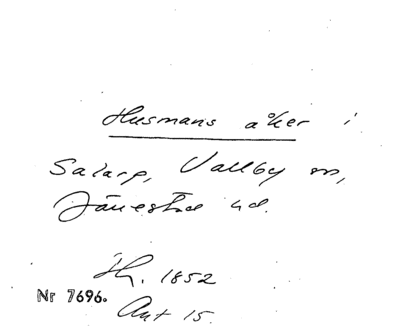 Husmans åker i
Salarp, Vallby sn,
Järrestad hd.
Jh. 1852
Nr 7696.
Ant 15.